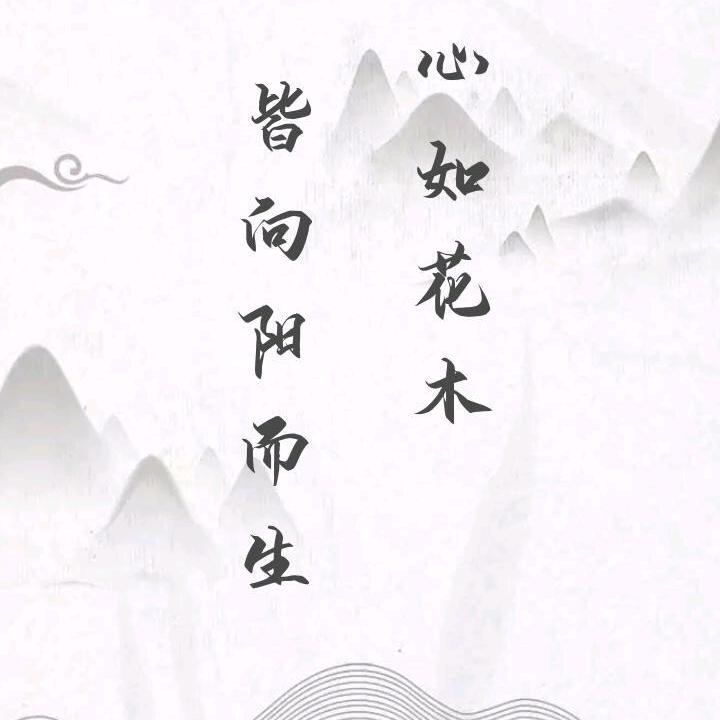 心如花木
皆向阳而生